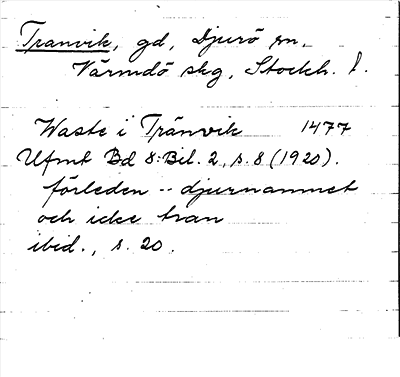 Tranvik, gd, Djurö sn,
Värmdö skg, Stockh. l.
Waste i Tränvik 1477
Ufmt Bd 8: Bil. 2, s. 8 (1920).
förleden -- djurnamnet
och icke tran
ibid., s. 20.